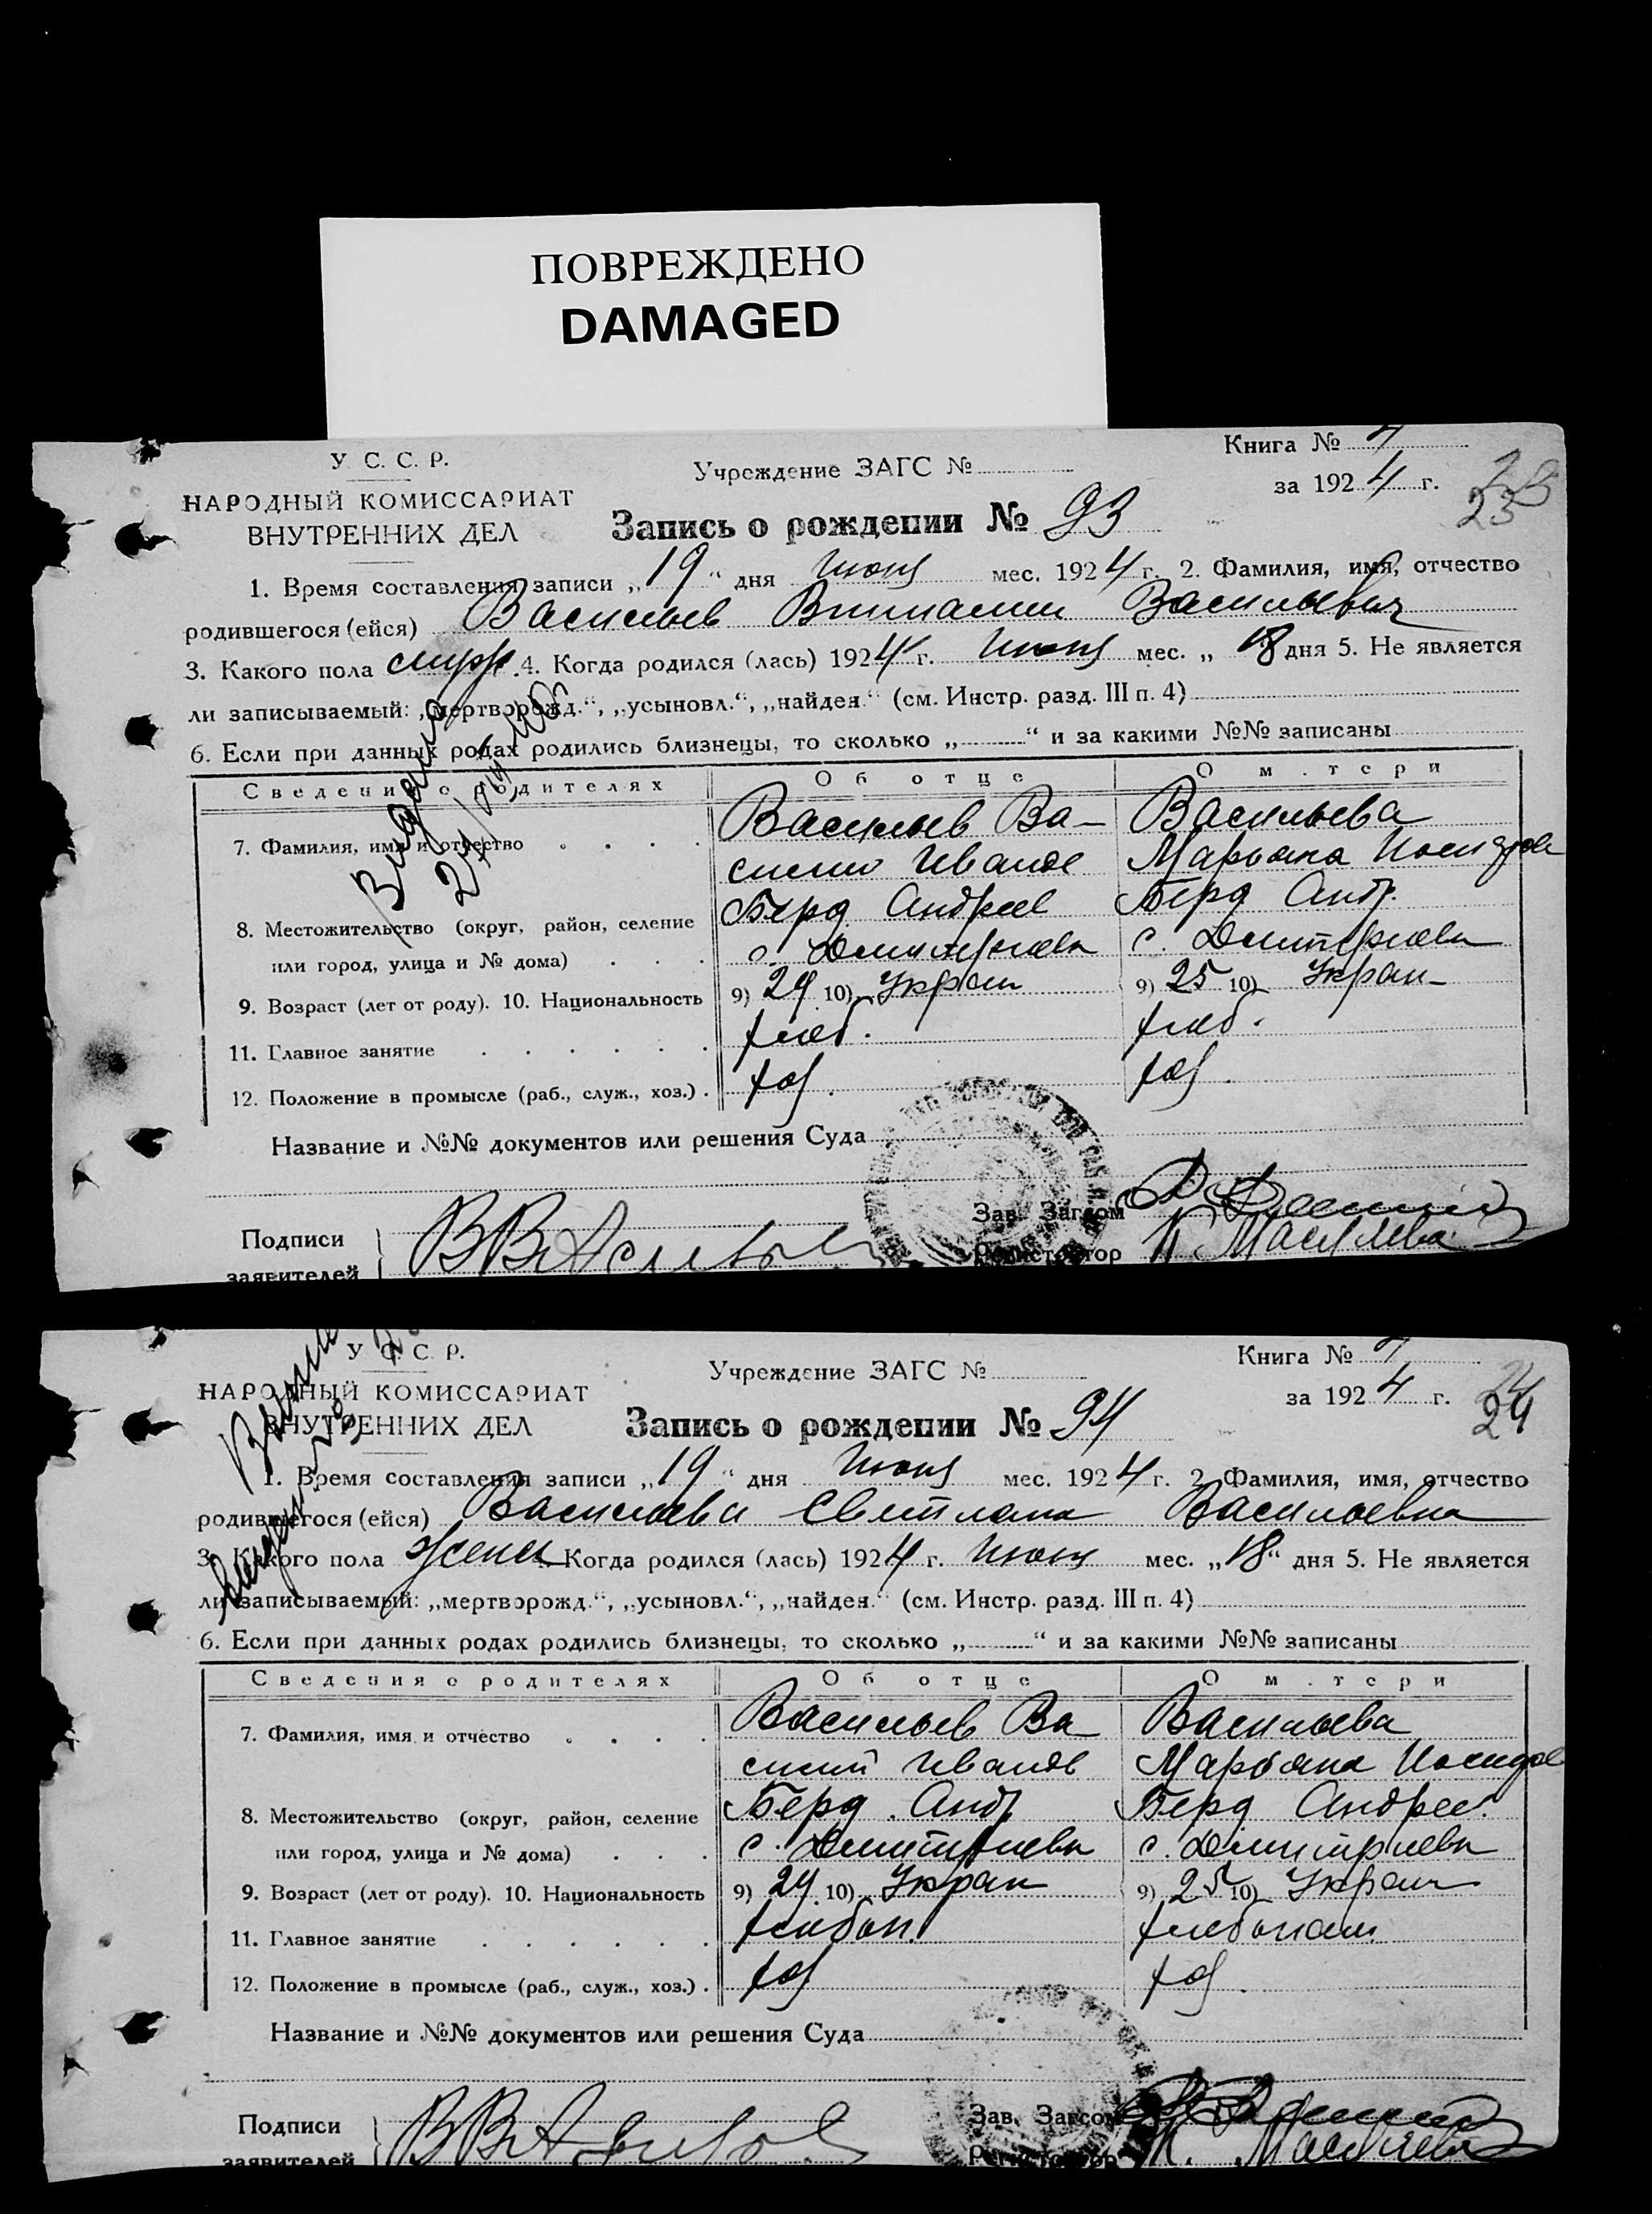 ПОВРЕЖДЕНО
DAMAGED
У. С. С. Р.
НАРОДНЫЙ КОМИССАРИАТ
ВНУТРЕННИХ ДЕЛ
Учреждение ЗАГС №
Книга №
за 1924 г.
23
Запись о рождении № 93
1. Время составления записи „19“ дня Июня мес. 1924 г. 2. Фамилия, имя, отчество
родившегося (ейся) Васильев Виталии Васильевич
3. Какого пола 4. Когда родился (лась) 1924 г. Июня мес. „18 дня 5. Не является
ли записываемый: „мертворожд.“, „усыновл.“, „найден.“ (см. Инстр. разд. III п. 4)
6. Если при данных родах родились близнецы, то сколько „ “ и за какими №№ записаны
Сведения о родителях Об отце О м.тери
7. Фамилия, имя и отчество Васильев Ва- Васильева
силий Иванов Марьяна
8. Местожительство (округ, район, селение Берд Андреев Берд Андр.
или город, улица и № дома) с. Дмитриевк с. Дмитриевк
9. Возраст (лет от роду). 10. Национальность 9) 29 10) Украин 9) 25 10) Украин
11. Главное занятие хлеб. хлеб.
12. Положение в промысле (раб., служ., хоз.) хоз. хоз.
Название и №№ документов или решения Суда
Зав. Загсом
Подписи
Регистратор
заявителей
У. С. С. Р.
НАРОДНЫЙ КОМИССАРИАТ
ВНУТРЕННИХ ДЕЛ
Учреждение ЗАГС №
Книга №
за 1924 г.
24
Запись о рождении № 94
1. Время составления записи „19“ дня Июня мес. 1924 г. 2. Фамилия, имя, отчество
родившегося (ейся) Васильева Светлана Васильевна
3. Какого пола женск Когда родился (лась) 1924 г. Июня мес. „18“ дня 5. Не является
ли записываемый: „мертворожд.“, „усыновл.“, „найден.“ (см. Инстр. разд. III п. 4)
6. Если при данных родах родились близнецы, то сколько „ “ и за какими №№ записаны
Сведения о родителях Об отце О м.тери
7. Фамилия, имя и отчество Васильев Ва Васильева
силий Иванов Марьяна
8. Местожительство (округ, район, селение Берд. Андр Берд Андрее.
или город, улица и № дома) с. Дмитриевк с. Дмитриевк
9. Возраст (лет от роду). 10. Национальность 9) 29 10) Украин 9) 25 10) Украин
11. Главное занятие хлебоп. хлебопаш.
12. Положение в промысле (раб., служ., хоз.) хоз хоз.
Название и №№ документов или решения Суда
Зав. Загсом
Подписи
Регистратор
заявителей